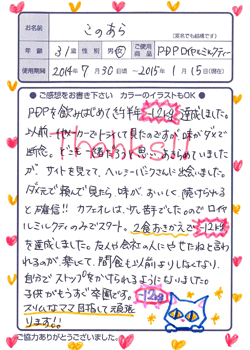 お名前
このあら
(匿名でも結構です)
年齢 31才 性別 男・女 ご使用商品 PDPロイヤルミルクティー
使用期間 2014年7月30日頃 〜2015年1月15日(現在)
●ご感想をお書き下さい カラーのイラストもOK●
PDPを飲みはじめて約半年 -12kg 達成しました。
Thanks!!
以前、他メーカーでトライして見たのですが、味がダメで
断念。ドーセ、誰だろうと思い、あきらめていました
が、サイトを見てて、ヘルシーバンクさんに出会いました。
ダメ元で頼んで見たら、味が、おいしく、続けられる
と確信!! カフェオレは、少し苦手でしたのでロイヤ
ルミルクティのみでスタート。2食おきかえで -12kg
を達成しました。友人や会社の人にやせたねと言わ
れるのが、楽しくて、間食も以前よりしなくなり、
自分で、ストップをかけられるようにもなりました。
子供がもうすぐ卒園です。 -12kg
スリムなママ目指して頑張
ります!!。
ご協力ありがとうございました。